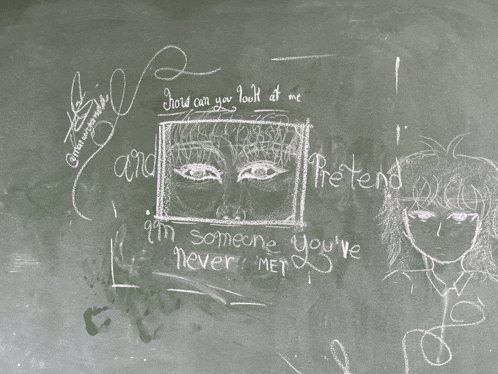 how can you look at me
and Pretend
i'm someone you've
never MET